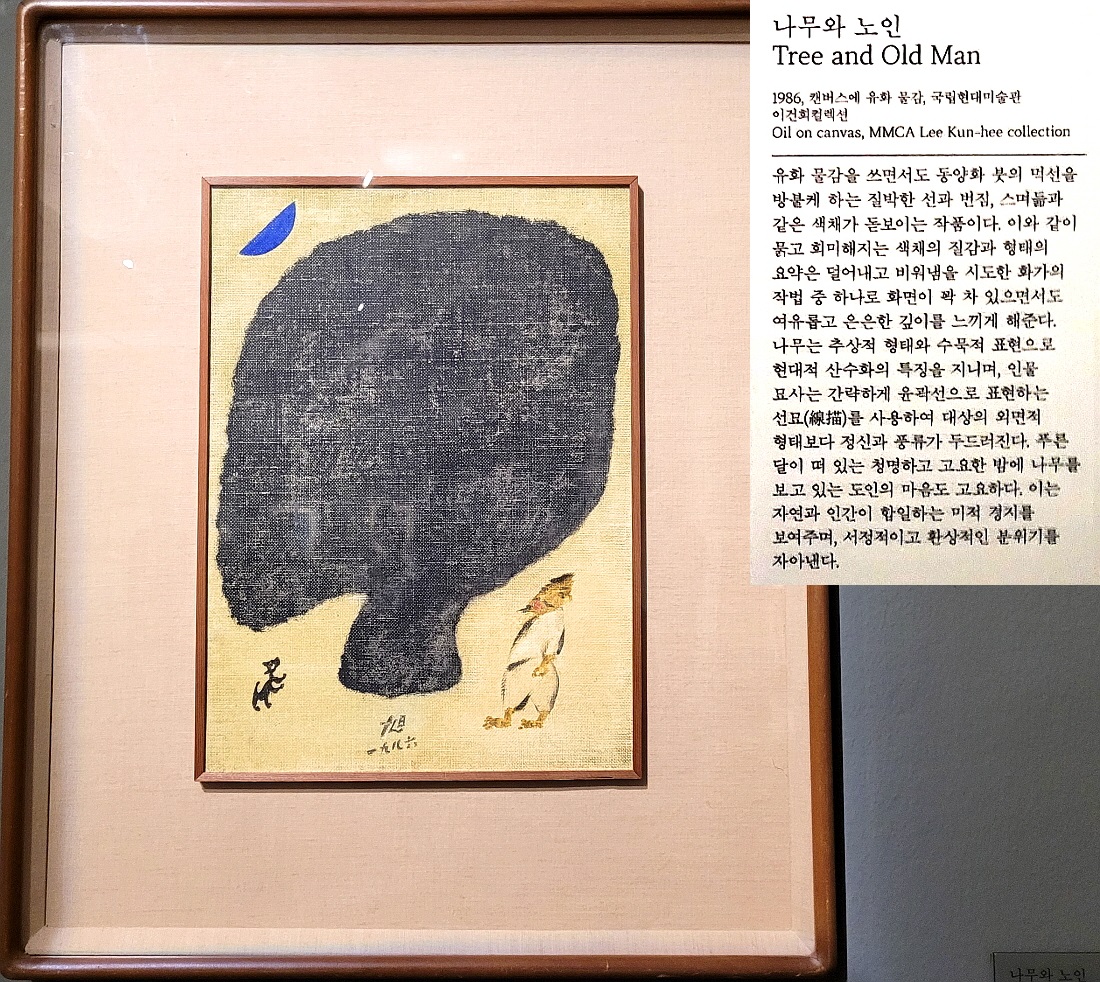 나무와 노인
Tree and Old Man
1986, 캔버스에 유화 물감, 국립현대미술관
이건희컬렉션
Oil on canvas, MMCA Lee Kun-hee collection
유화 물감을 쓰면서도 동양화 붓의 먹선을
방불케 하는 질박한 선과 번짐, 스며듦과
같은 색채가 돋보이는 작품이다. 이와 같이
묽고 희미해지는 색채의 질감과 형태의
요약은 덜어내고 비워냄을 시도한 화가의
작법 중 하나로 화면이 꽉 차 있으면서도
여유롭고 은은한 깊이를 느끼게 해준다.
나무는 추상적 형태와 수묵적 표현으로
현대적 산수화의 특징을 지니며, 인물
묘사는 간략하게 윤곽선으로 표현하는
선묘(線描)를 사용하여 대상의 외면적
형태보다 정신과 풍류가 두드러진다. 푸른
달이 떠 있는 청명하고 고요한 밤에 나무를
보고 있는 도인의 마음도 고요하다. 이는
자연과 인간이 합일하는 미적 경지를
보여주며, 서정적이고 환상적인 분위기를
자아낸다.
一九八六
나무와 노인